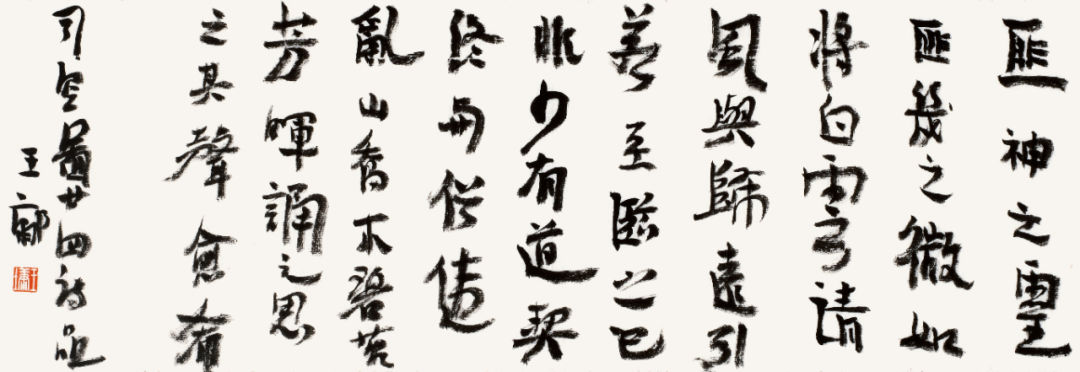 匪神之靈
匪幾之微如
將白雲請
風與歸遠引
若至臨之已
非少有道契
終與俗違
亂山喬木碧苔
芳暉誦之思
之其聲愈希
司空圖廿四詩品
王